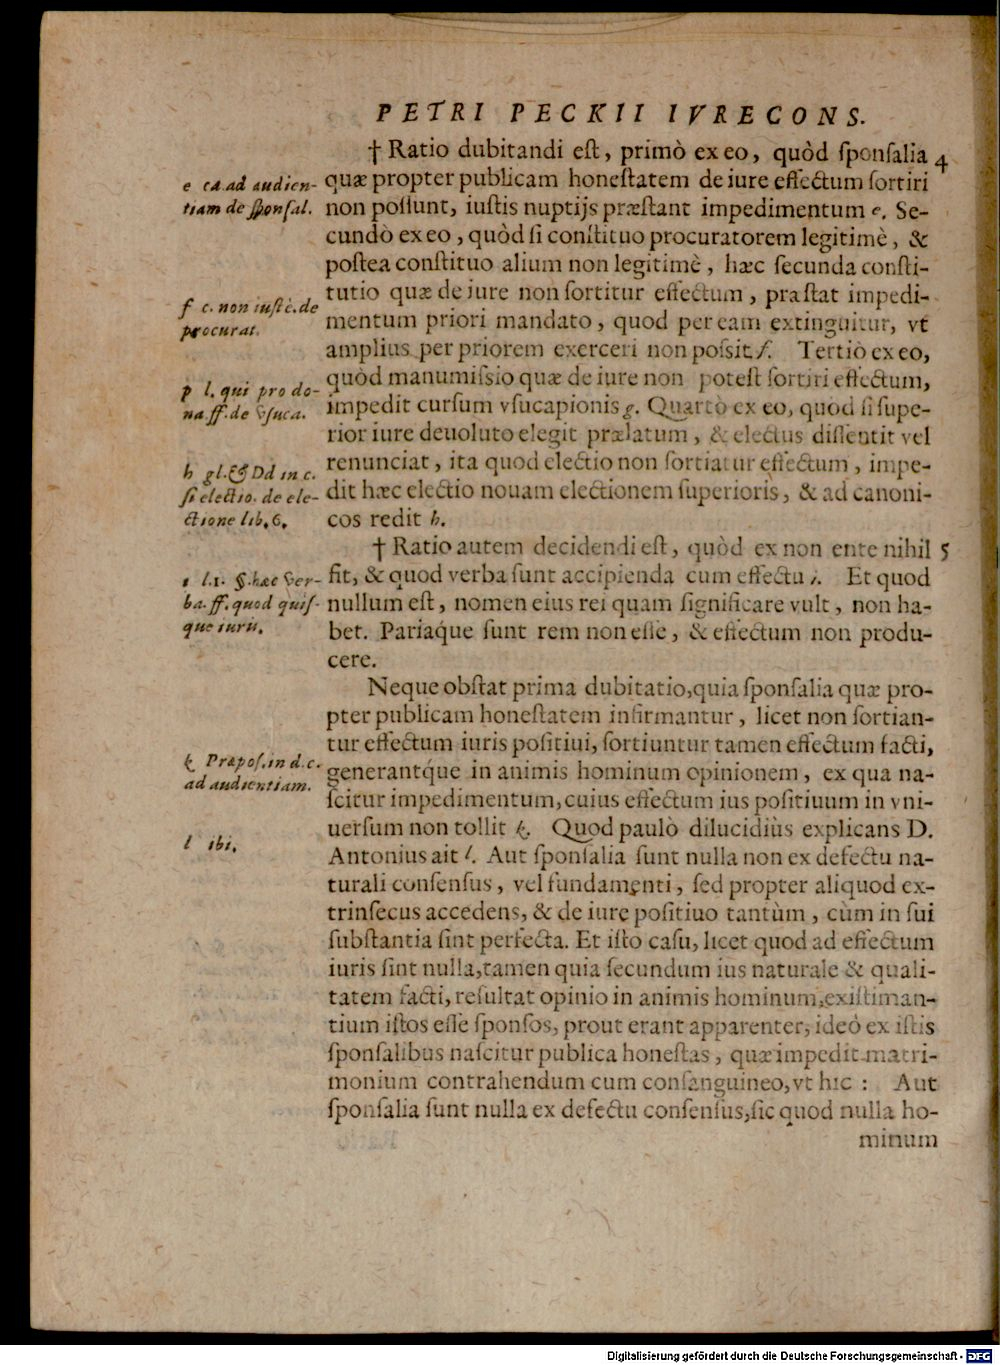 PETRI PECKII IVRECONS.
† Ratio dubitandi eſt, primò ex eo, quòd ſponſalia 4
quæ propter publicam honeſtatem de iure effectum ſortiri
non poſſunt, iuſtis nuptijs præſtant impedimentum e. Se-
cundò ex eo, quòd ſi conſtituo procuratorem legitimè, &
poſtea conſtituo alium non legitimè, hæc ſecunda conſti-
tutio quæ de iure non ſortitur effectum, præſtat impedi-
mentum priori mandato, quod per eam extinguitur, vt
amplius per priorem exerceri non poſsit f. Tertiò ex eo,
quòd manumiſsio quæ de iure non poteſt ſortiri effectum,
impedit curſum vſucapionis g. Quartò ex eo, quod ſi ſupe-
rior iure deuoluto elegit prælatum, & electus diſſentit vel
renunciat, ita quod electio non ſortiatur effectum, impe-
dit hæc electio nouam electionem ſuperioris, & ad canoni-
cos redit h.
† Ratio autem decidendi eſt, quòd ex non ente nihil 5
fit, & quod verba ſunt accipienda cum effectu i. Et quod
nullum eſt, nomen eius rei quam ſignificare vult, non ha-
bet. Pariaq́ue ſunt rem non eſſe, & effectum non produ-
cere.
Neque obſtat prima dubitatio, quia ſponſalia quæ pro-
pter publicam honeſtatem infirmantur, licet non ſortian-
tur effectum iuris poſitiui, ſortiuntur tamen effectum facti,
generantq́ue in animis hominum opinionem, ex qua na-
ſcitur impedimentum, cuius effectum ius poſitiuum in vni-
uerſum non tollit k. Quod paulò dilucidiùs explicans D.
Antonius ait l. Aut ſponſalia ſunt nulla non ex defectu na-
turali conſenſus, vel fundamenti, ſed propter aliquod ex-
trinſecus accedens, & de iure poſitiuo tantùm, cùm in ſui
ſubſtantia ſint perfecta. Et iſto caſu, licet quod ad effectum
iuris ſint nulla, tamen quia ſecundum ius naturale & quali-
tatem facti, reſultat opinio in animis hominum, exiſtiman-
tium iſtos eſſe ſponſos, prout erant apparenter, ideò ex iſtis
ſponſalibus naſcitur publica honeſtas, quæ impedit matri-
monium contrahendum cum conſanguineo, vt hic : Aut
ſponſalia ſunt nulla ex defectu conſenſus, ſic quod nulla ho-
minum
e ca. ad audien-
tiam de ſponſal.
f c. non iuſtè. de
procurat.
p l. qui pro do-
na. ff. de vſuca.
h gl. & Dd in c.
ſi electio. de ele-
ctione lib. 6.
i l.1. §. hæc ver-
ba. ff. quod quiſ-
que iuris.
k Præpoſ. in d. c.
ad audientiam.
l ibi.
Digitalisierung gefördert durch die Deutsche Forschungsgemeinschaft - DFG